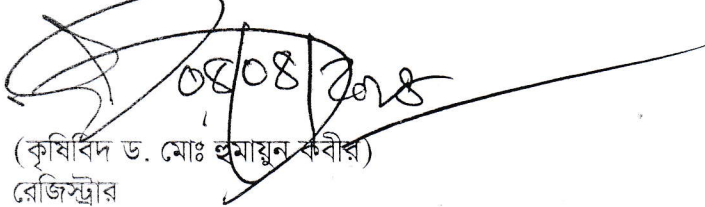 ০৪|০৪|২০২৪
(কৃষিবিদ ড. মোঃ হুমায়ুন কবীর)
রেজিস্ট্রার